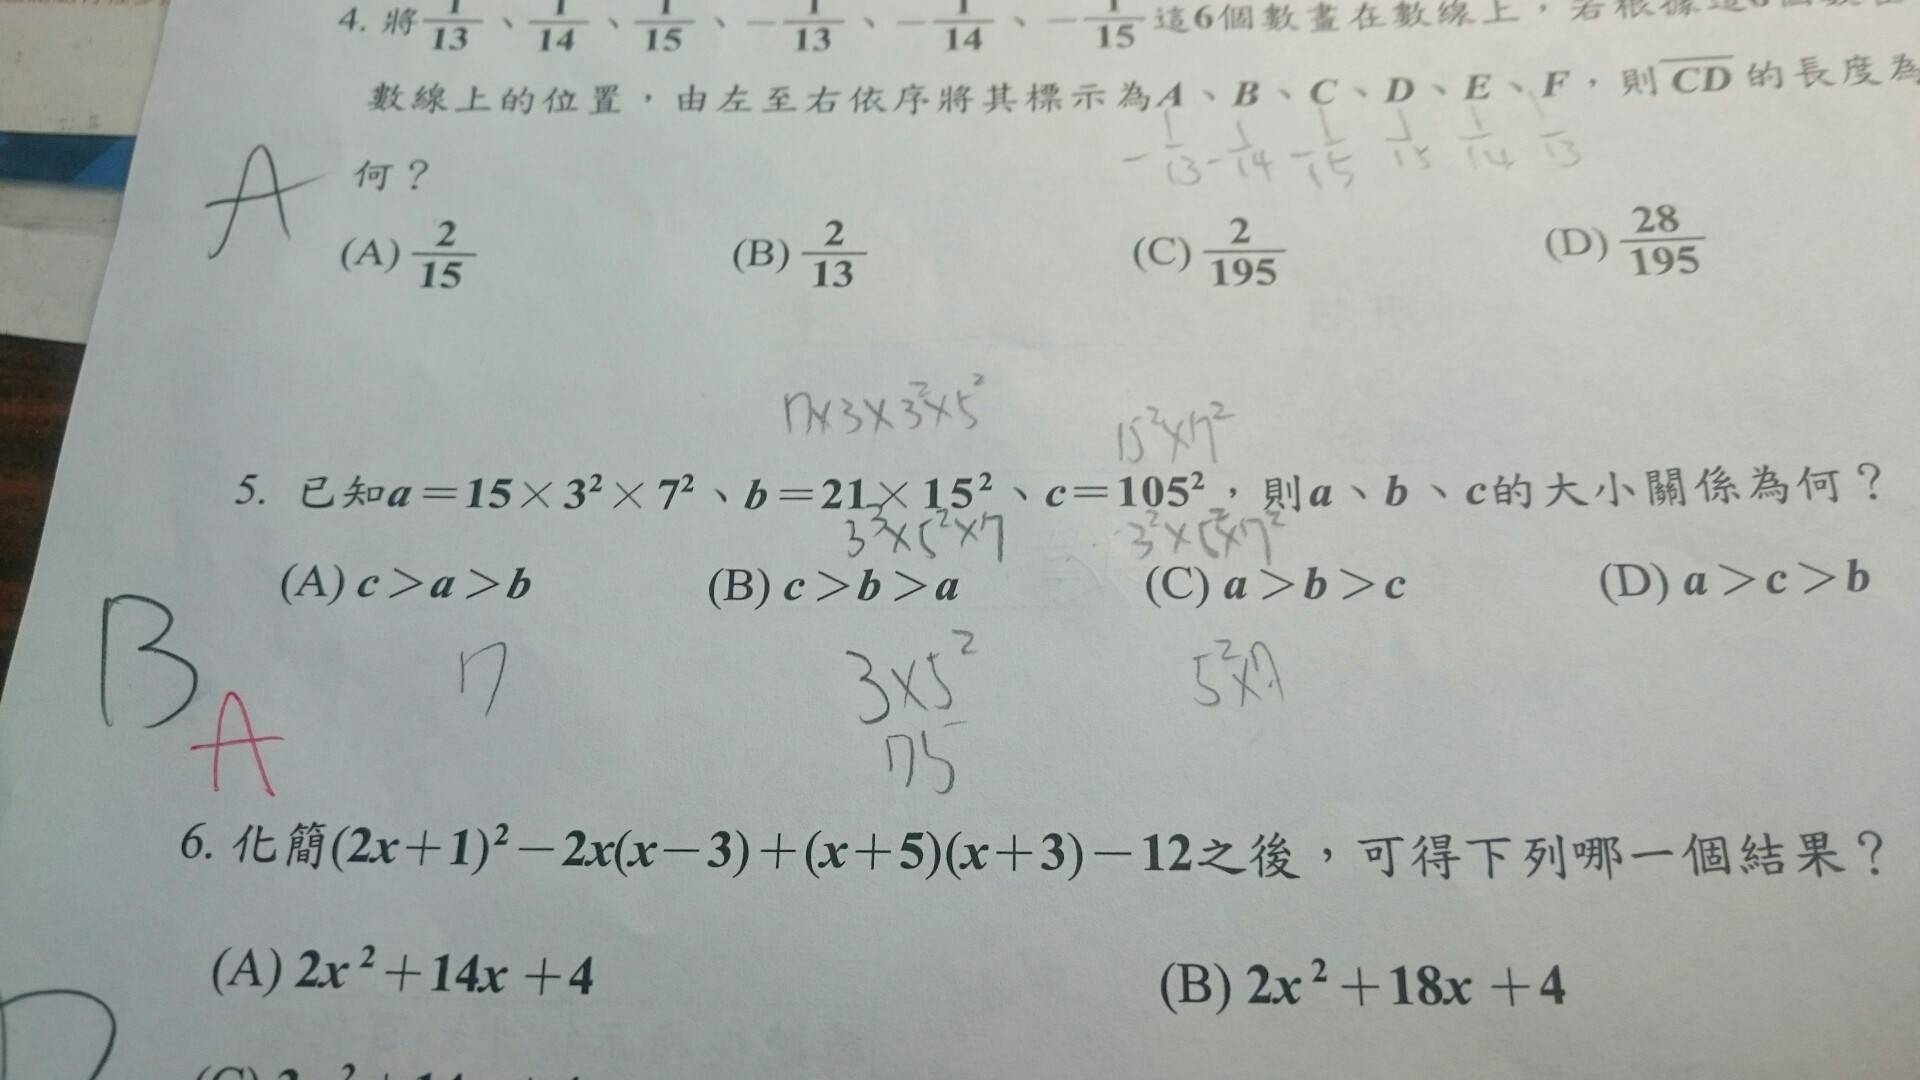 4. 將 1/13、1/14、1/15、-1/13、-1/14、-1/15 這6個數畫在數線上，若根據這6個數在
數線上的位置，由左至右依序將其標示為A、B、C、D、E、F，則CD的長度為
-1/13 -1/14 -1/15 1/15 1/14 1/13
A
何？
(A) 2/15 (B) 2/13 (C) 2/195 (D) 28/195
7×3×3²×5² 15²×7²
5. 已知a=15×3²×7²、b=21×15²、c=105²，則a、b、c的大小關係為何？
3³×5²×7 3²×5²×7²
(A) c>a>b (B) c>b>a (C) a>b>c (D) a>c>b
B
7 3×5² 5²×7
A
75
6. 化簡(2x+1)²-2x(x-3)+(x+5)(x+3)-12之後，可得下列哪一個結果？
(A) 2x²+14x+4 (B) 2x²+18x+4